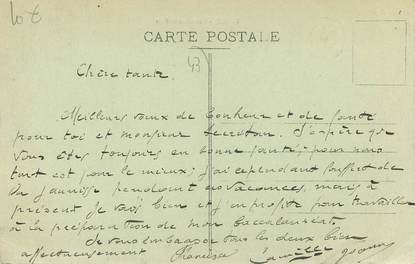 Lot
CARTE POSTALE
43
Chère tante,
Meilleurs vœux de bonheur et de santé
pour toi et monsieur J'espère que
vous êtes toujours en bonne santé; pour nous
tout est pour le mieux; j'ai cependant souffert de
la jaunisse pendant les vacances, mais à
présent je vais bien et j'en profite pour travailler
à la préparation de mon baccalauréat
Je vous embrasse tous les deux bien
affectueusement